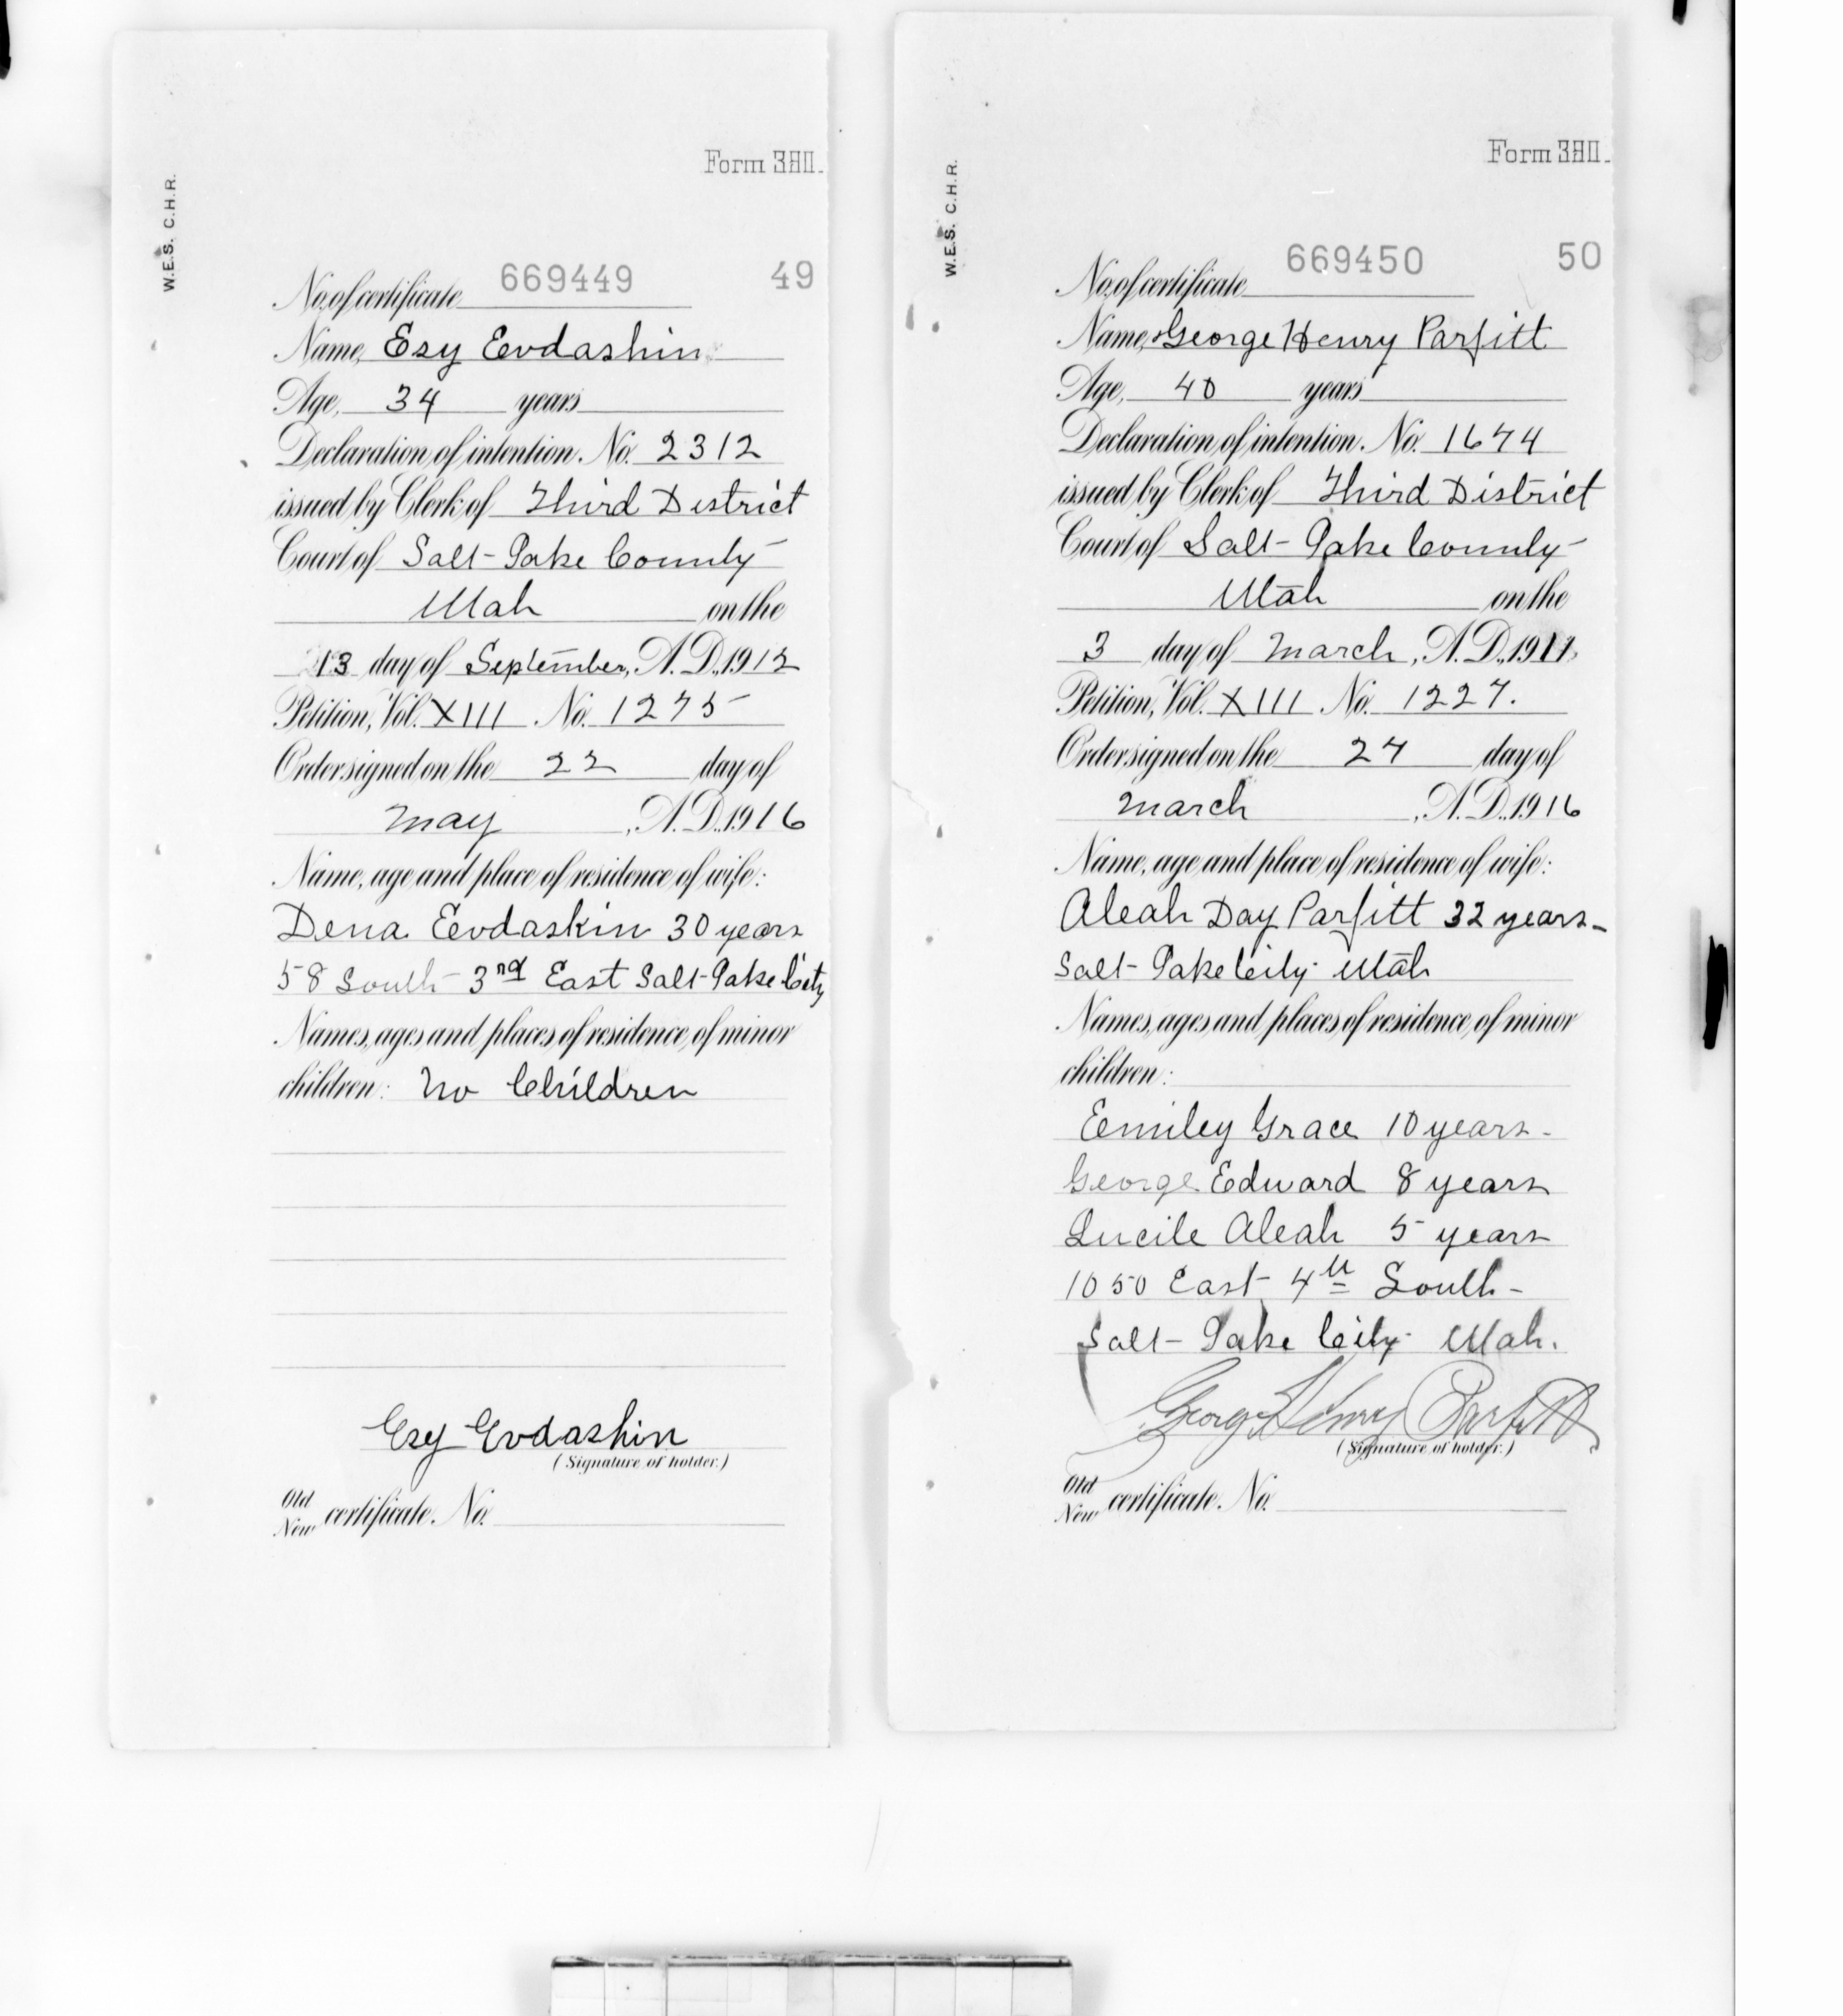 Form 380.
W.E.S. C.H.R.
No. of certificate 669449 49
Name, Esy Evdashin
Age, 34 years
Declaration of intention. No. 2312
issued by Clerk of Third District
Court of Salt Lake County
Utah on the
13 day of September, A.D. 1912
Petition, Vol. XIII No. 1275
Order signed on the 22 day of
May, A.D. 1916
Name, age and place of residence of wife:
Dena Evdaskin 30 years
58 South 3rd East Salt Lake City
Names, ages and places of residence of minor
children: No Children
Esy Evdashin
(Signature of holder.)
Old
New certificate. No.
Form 380.
W.E.S. C.H.R.
No. of certificate 669450 50
Name, George Henry Parfitt
Age, 40 years
Declaration of intention. No. 1674
issued by Clerk of Third District
Court of Salt Lake County
Utah on the
3 day of March, A.D. 1911
Petition, Vol. XIII No. 1227.
Order signed on the 27 day of
March, A.D. 1916
Name, age and place of residence of wife:
Aleah Day Parfitt 32 years
Salt Lake City Utah
Names, ages and places of residence of minor
children:
Emiley Grace 10 years
George Edward 8 years
Lucile Aleah 5 years
1050 East 4th South
Salt Lake City Utah.
George Henry Parfitt
(Signature of holder.)
Old
New certificate. No.